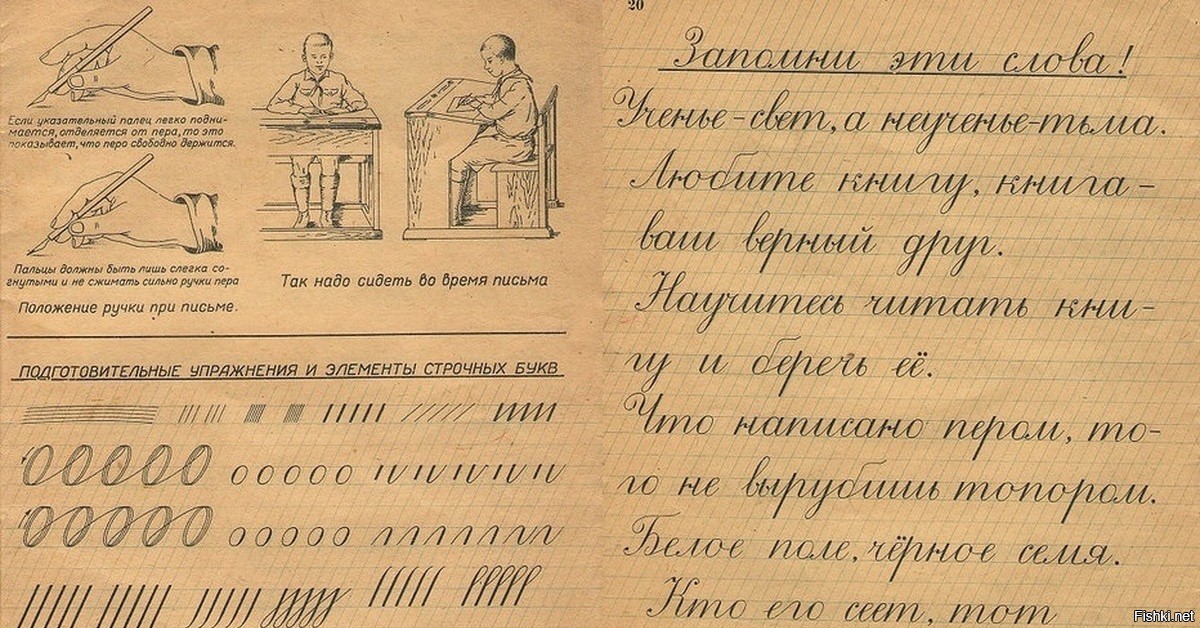 Если указательный палец легко подни-
мается, отделяется от пера, то это
показывает, что перо свободно держится.
Пальцы должны быть лишь слегка со-
гнутыми и не сжимать сильно ручки пера
Положение ручки при письме.
Так надо сидеть во время письма
ПОДГОТОВИТЕЛЬНЫЕ УПРАЖНЕНИЯ И ЭЛЕМЕНТЫ СТРОЧНЫХ БУКВ
20
Запомни эти слова!
Ученье-свет, а неученье-тьма.
Любите книгу, книга-
ваш верный друг.
Научитесь читать кни-
гу и беречь её.
Что написано пером, то-
го не вырубишь топором.
Белое поле, чёрное семя.
Кто его сеет, тот
Fishki.net